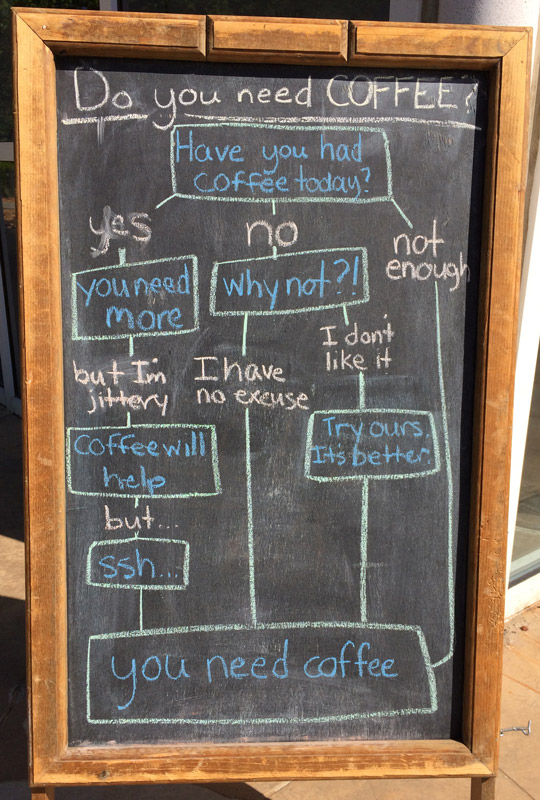 Do you need COFFEE?
Have you had
coffee today?
yes
no
not
enough
you need
more
why not?!
but I'm
jittery
I have
no excuse
I don't
like it
Coffee will
help
Try ours.
It's better.
but...
ssh...
you need coffee